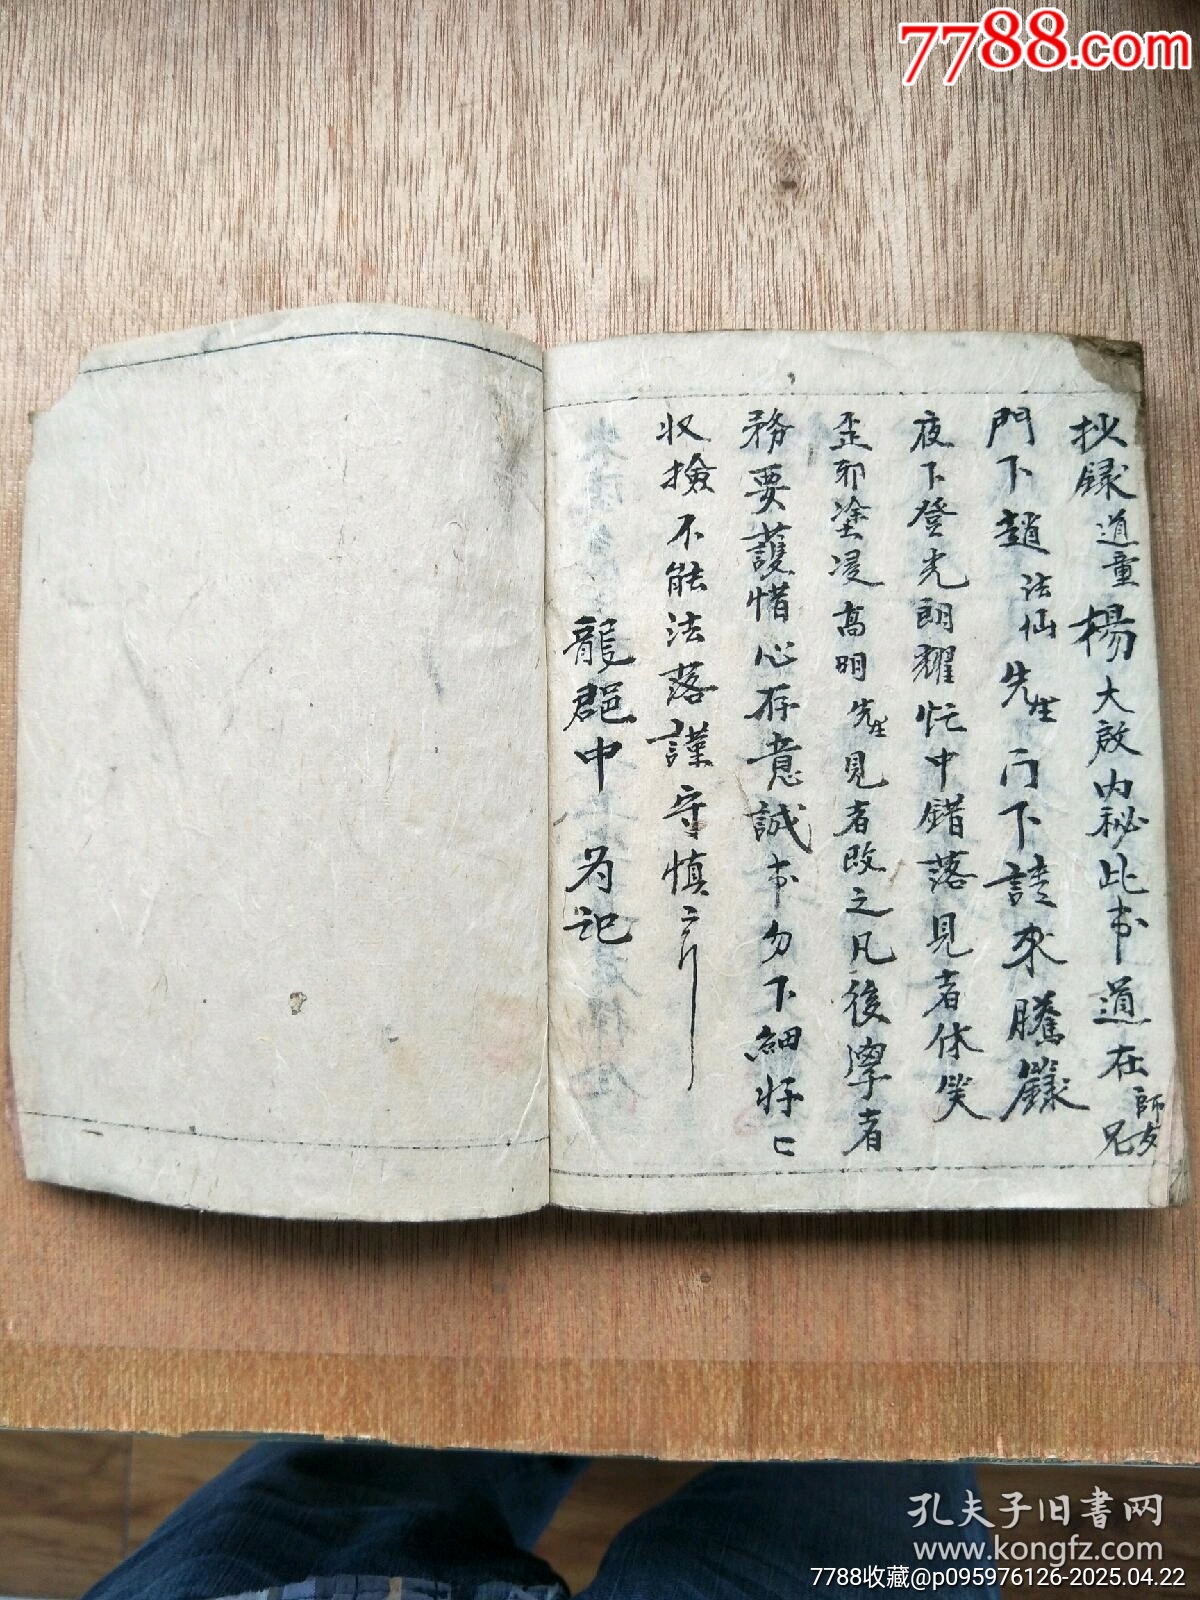 7788.com
抄録道童楊大啟内秘此书道在師友兄
門下趙法仙先生门下請來騰籙
夜下登光朗耀忙中錯落見者休笑
歪邪塗浸高明先生見者改之凡後學者
務要護惜心存意誠书勿下細收匕
收撿不能法落謹守慎言
龍郡中为記
孔夫子旧书网
www.kongfz.com
7788收藏@p095976126-2025.04.22